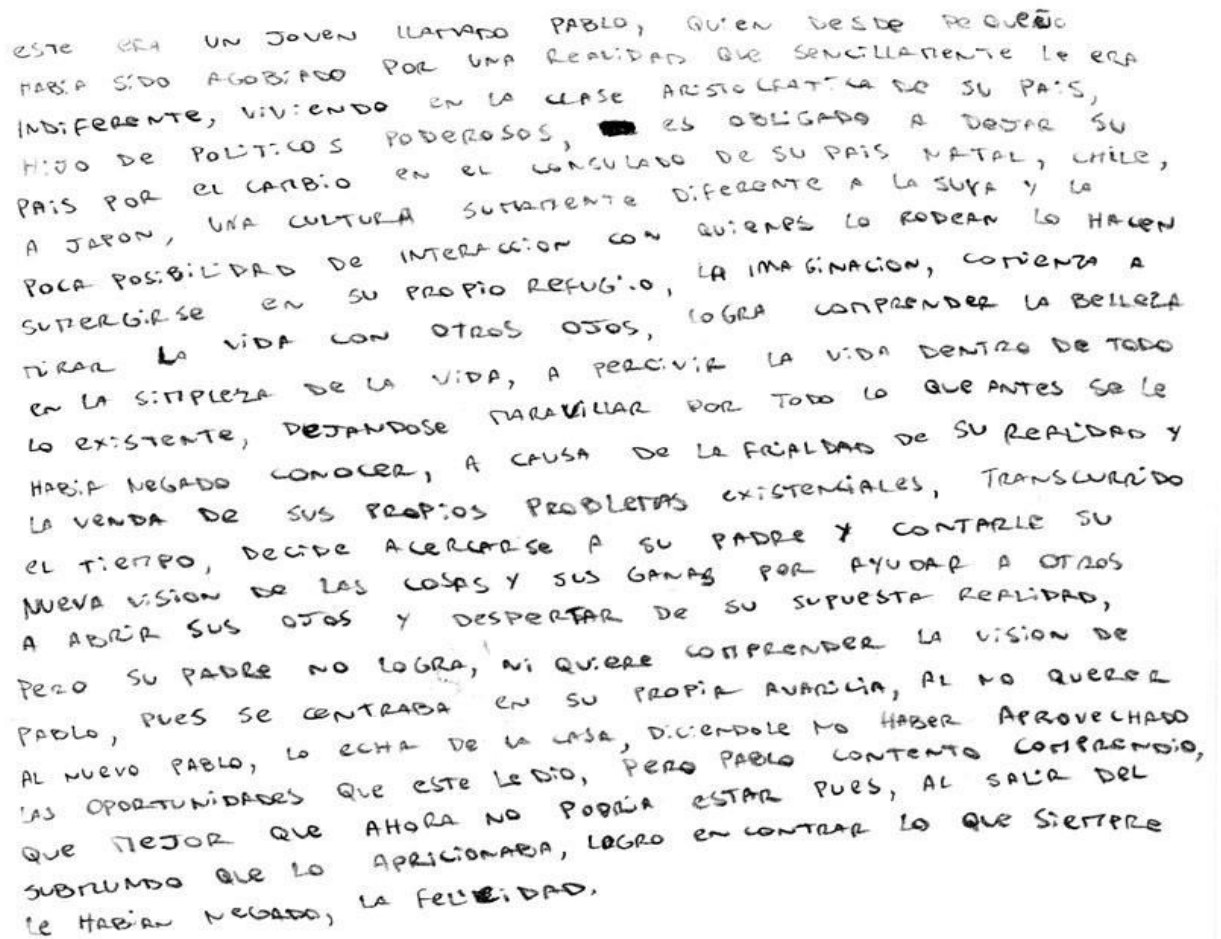 ESTE ERA UN JOVEN LLAMADO PABLO, QUIEN DESDE PEQUEÑO
HABIA SIDO AGOBIADO POR UNA REALIDAD QUE SENCILLAMENTE LE ERA
INDIFERENTE, VIVIENDO EN LA CLASE ARISTOCRATICA DE SU PAIS,
HIJO DE POLITICOS PODEROSOS, ES OBLIGADO A DEJAR SU
PAIS POR EL CAMBIO EN EL CONSULADO DE SU PAIS NATAL, CHILE,
A JAPON, UNA CULTURA SUMAMENTE DIFERENTE A LA SUYA Y LA
POCA POSIBILIDAD DE INTERACCION CON QUIENES LO RODEAN LO HACEN
SUMERGIRSE EN SU PROPIO REFUGIO, LA IMAGINACION, COMIENZA A
MIRAR LA VIDA CON OTROS OJOS, LOGRA COMPRENDER LA BELLEZA
EN LA SIMPLEZA DE LA VIDA, A PERCIVIR LA VIDA DENTRO DE TODO
LO EXISTENTE, DEJANDOSE MARAVILLAR POR TODO LO QUE ANTES SE LE
HABIA NEGADO CONOCER, A CAUSA DE LA FRIALDAD DE SU REALIDAD Y
LA VENDA DE SUS PROPIOS PROBLEMAS EXISTENCIALES, TRANSCURRIDO
EL TIEMPO, DECIDE ACERCARSE A SU PADRE Y CONTARLE SU
NUEVA VISION DE LAS COSAS Y SUS GANAS POR AYUDAR A OTROS
A ABRIR SUS OJOS Y DESPERTAR DE SU SUPUESTA REALIDAD,
PERO SU PADRE NO LOGRA, NI QUIERE COMPRENDER LA VISION DE
PABLO, PUES SE CENTRABA EN SU PROPIA AVARICIA, AL NO QUERER
AL NUEVO PABLO, LO ECHA DE LA CASA, DICIENDOLE NO HABER APROVECHADO
LAS OPORTUNIDADES QUE ESTE LE DIO, PERO PABLO CONTENTO COMPRENDIO,
QUE MEJOR QUE AHORA NO PODRIA ESTAR PUES, AL SALIR DEL
SUBMUNDO QUE LO APRICIONABA, LOGRO ENCONTRAR LO QUE SIEMPRE
LE HABIAN NEGADO, LA FELICIDAD.